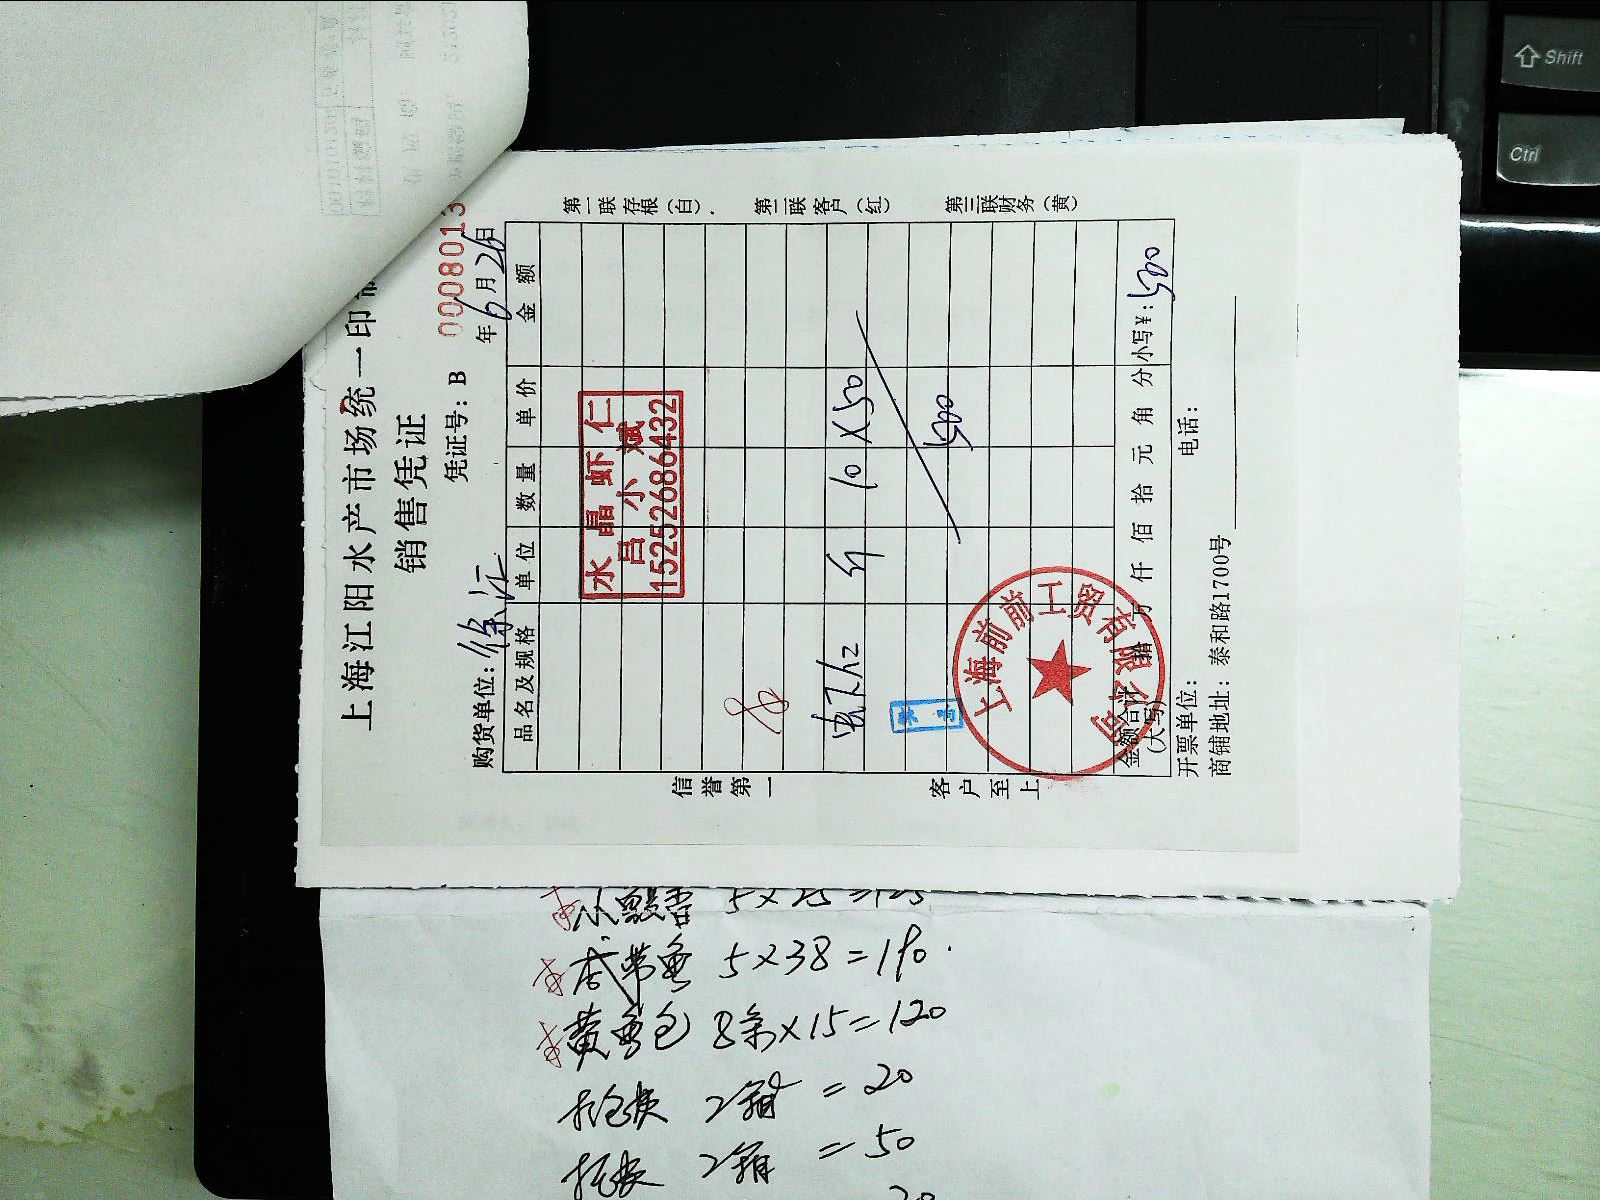 上海江阳水产市场统一印制
销售凭证
凭证号: B 0008013
购货单位: 徐汇 年 6 月 26 日
品名及规格 单位 数量 单价 金额
水晶虾仁
吕小斌
15252686432
虾仁 斤 10 X 50
500
上海前前工贸有限公司
金额合计(大写) 拾 万 仟 佰 拾 元 角 分 小写¥: 500
开票单位: 电话:
商铺地址: 泰和路1700号
信誉第一 客户至上
第一联存根(白).
第二联客户(红)
第三联财务(黄)
5×25=125
带鱼 5×38=190
黄鱼包 8条×15=120
2箱 =20
2箱 =50
20
Shift
Ctrl